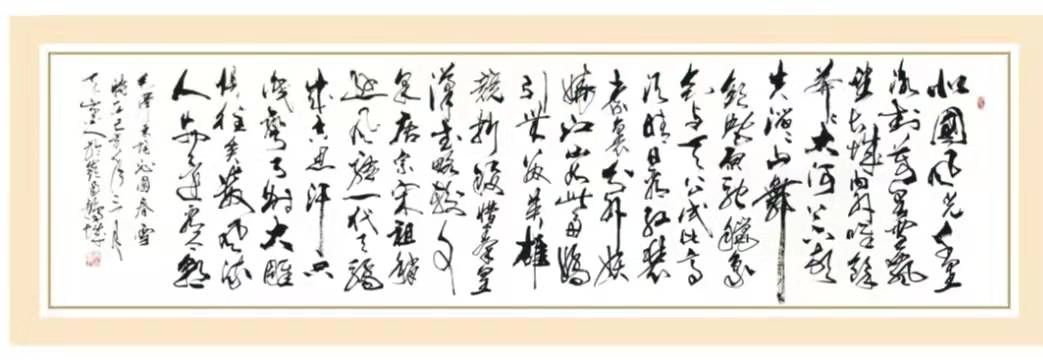 北國風光千里
冰封萬里雪飄
望長城內外唯餘
莽莽大河上下頓
失滔滔山舞
銀蛇原馳蠟象
欲與天公試比高
須晴日看紅裝
素裹分外妖
嬈江山如此多嬌
引無數英雄
競折腰惜秦皇
漢武略輸文
采唐宗宋祖稍
遜風騷一代天驕
成吉思汗只
識彎弓射大雕
俱往矣數風流
人物還看今朝
毛澤東沁園春雪
三月